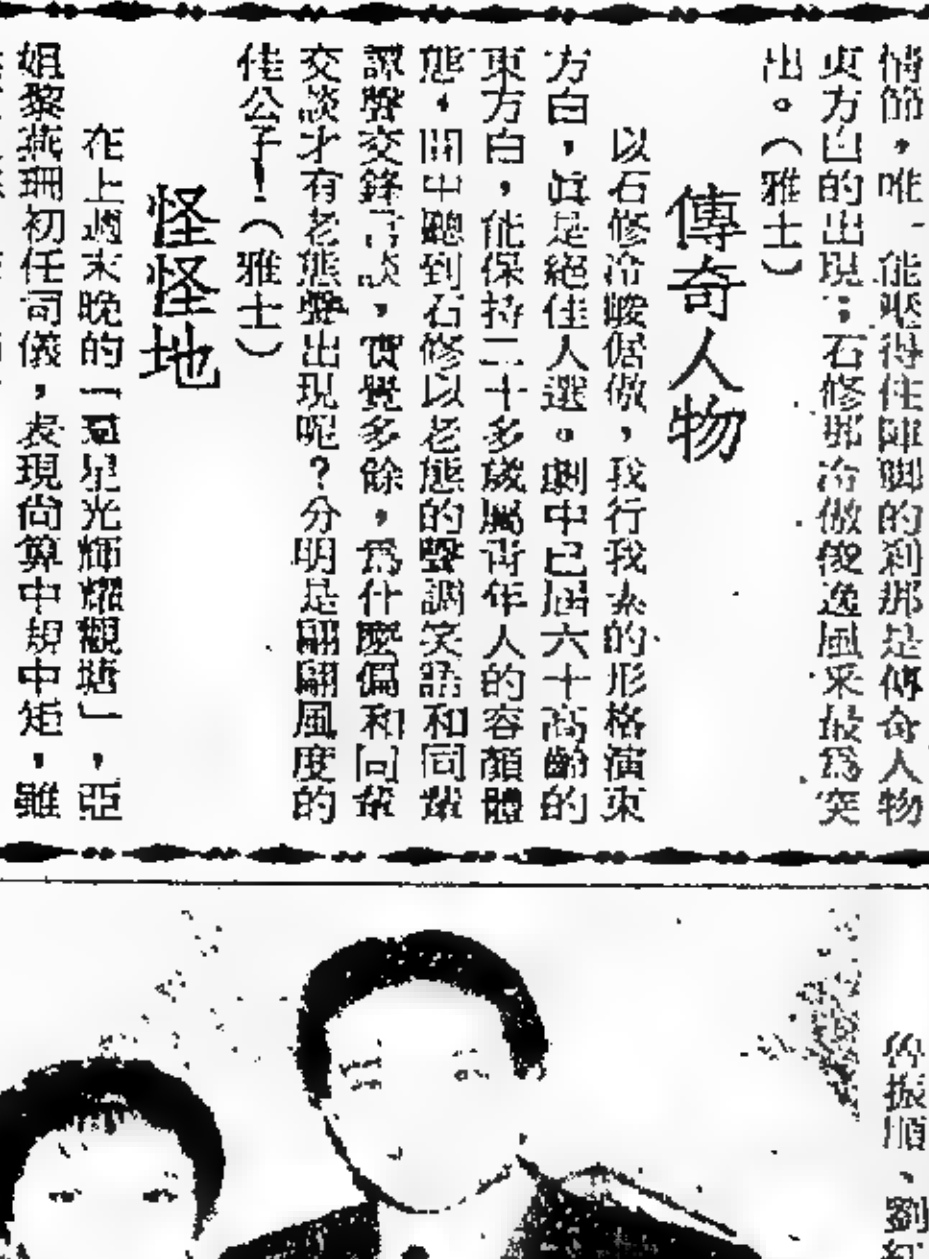 情節，唯一能壓得住陣脚的刹那是傳奇人物
東方白的出現；石修那冷傲俊逸風采最為突
出。（雅士）
傳奇人物
以石修冷峻倨傲，我行我素的形格演東
方白，眞是絕佳人選。劇中已屆六十高齡的
東方白，能保持二十多歲屬靑年人的容顏體
態，間中聽到石修以老態的聲調笑語和同輩
聲交鋒言談，實覺多餘，爲什麼偏和同輩
交談才有老態聲出現呢？分明是翩翩風度的
佳公子！（雅士）
怪怪地
在上週末晚的「星光輝耀觀塘」，亞
姐黎燕珊初任司儀，表現尚算中規中矩，雖
振順、劉